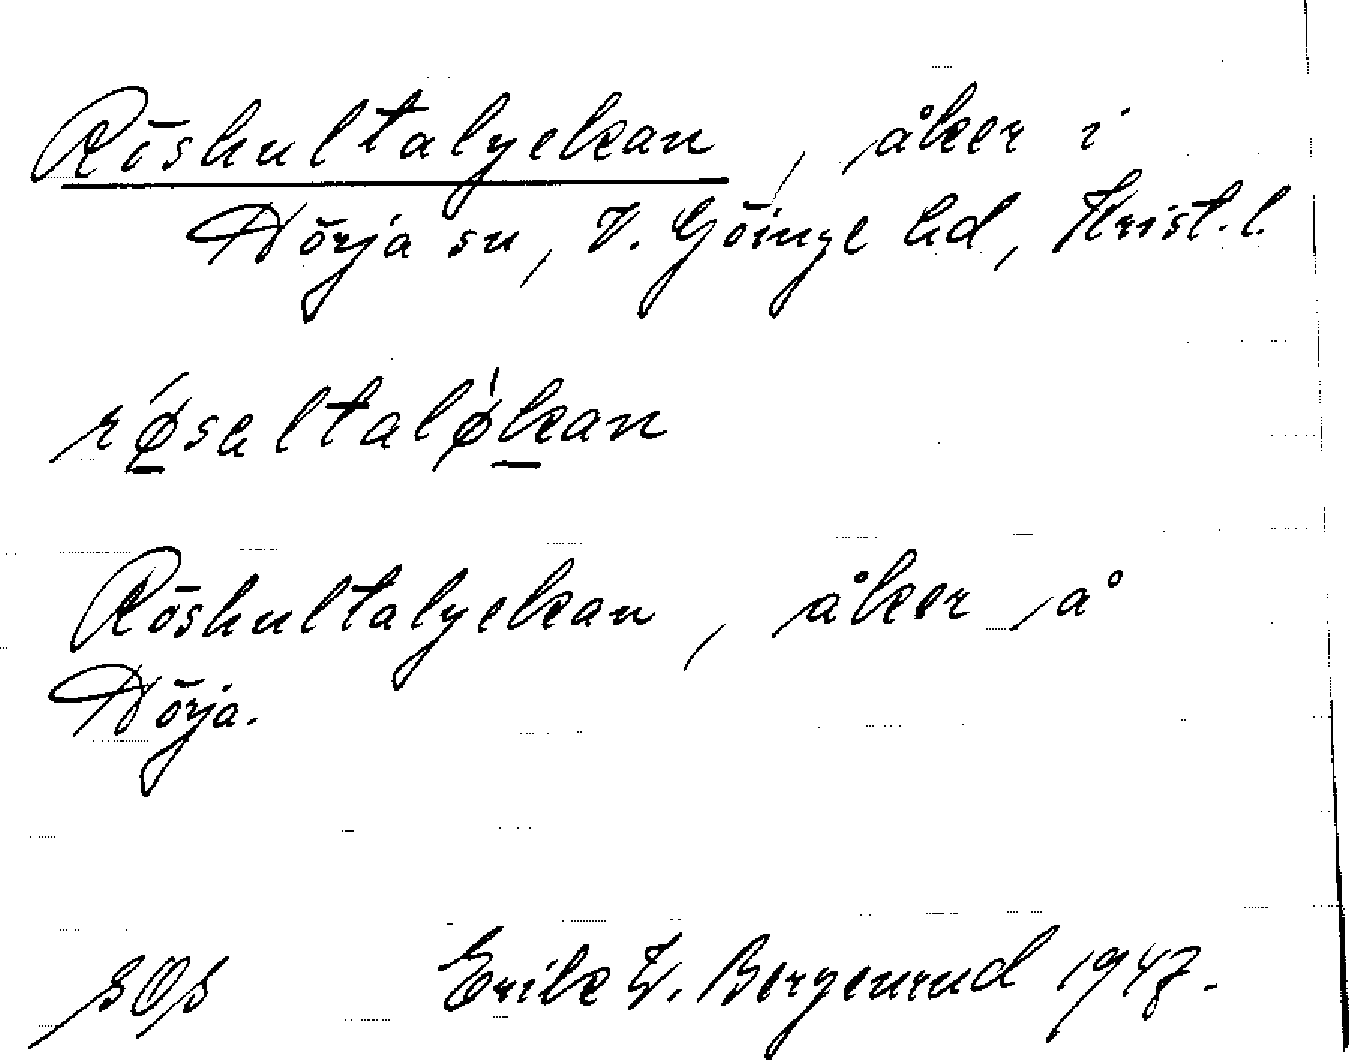 Röshultalyekan, åker i
Nörja sn, V. Göinge hd, Krist. l.
røsaltaløkan
Röshultalyekan, åker å
Nörja.
sOs Erik W. Borgenrud 1947.